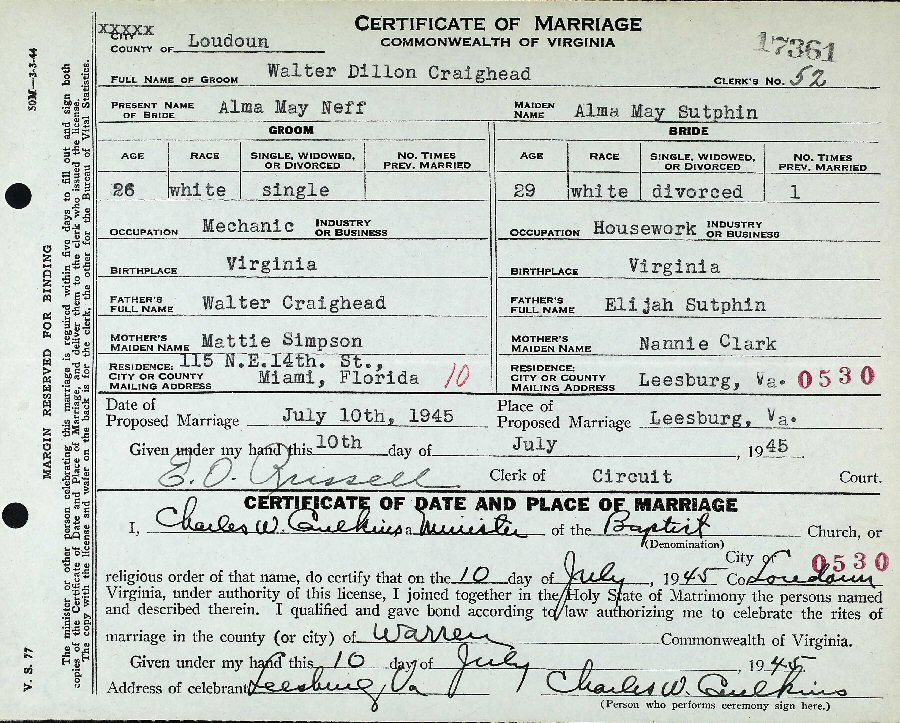 CERTIFICATE OF MARRIAGE
COMMONWEALTH OF VIRGINIA
XXXXX
CITY
COUNTY OF Loudoun
17361
FULL NAME OF GROOM Walter Dillon Craighead CLERK'S NO. 52
PRESENT NAME OF BRIDE Alma May Neff MAIDEN NAME Alma May Sutphin
GROOM BRIDE
AGE RACE SINGLE, WIDOWED, OR DIVORCED NO. TIMES PREV. MARRIED AGE RACE SINGLE, WIDOWED, OR DIVORCED NO. TIMES PREV. MARRIED
26 white single 29 white divorced 1
OCCUPATION Mechanic INDUSTRY OR BUSINESS OCCUPATION Housework INDUSTRY OR BUSINESS
BIRTHPLACE Virginia BIRTHPLACE Virginia
FATHER'S FULL NAME Walter Craighead FATHER'S FULL NAME Elijah Sutphin
MOTHER'S MAIDEN NAME Mattie Simpson MOTHER'S MAIDEN NAME Nannie Clark
RESIDENCE: CITY OR COUNTY MAILING ADDRESS 115 N.E.14th. St., Miami, Florida 10 RESIDENCE: CITY OR COUNTY MAILING ADDRESS Leesburg, Va. 0530
Date of Proposed Marriage July 10th, 1945 Place of Proposed Marriage Leesburg, Va.
Given under my hand this 10th day of July, 1945
E. O. Russell Clerk of Circuit Court.
CERTIFICATE OF DATE AND PLACE OF MARRIAGE
I, Charles W. Caulkins a Minister of the Baptist Church, or
(Denomination)
City of 0530
religious order of that name, do certify that on the 10 day of July, 1945 Co Loudoun
Virginia, under authority of this license, I joined together in the Holy State of Matrimony the persons named
and described therein. I qualified and gave bond according to law authorizing me to celebrate the rites of
marriage in the county (or city) of Warren Commonwealth of Virginia.
Given under my hand this 10 day of July 1945.
Address of celebrant Leesburg, Va Charles W. Caulkins
(Person who performs ceremony sign here.)
50M—3-3-44
V. S. 77
MARGIN RESERVED FOR BINDING
The minister or other person celebrating this marriage is required within five days to fill out and sign both
copies of the Certificate of Date and Place of Marriage, and deliver them to the clerk who issued the license.
The copy with the license and wafer on the back is for the clerk, the other for the Bureau of Vital Statistics.